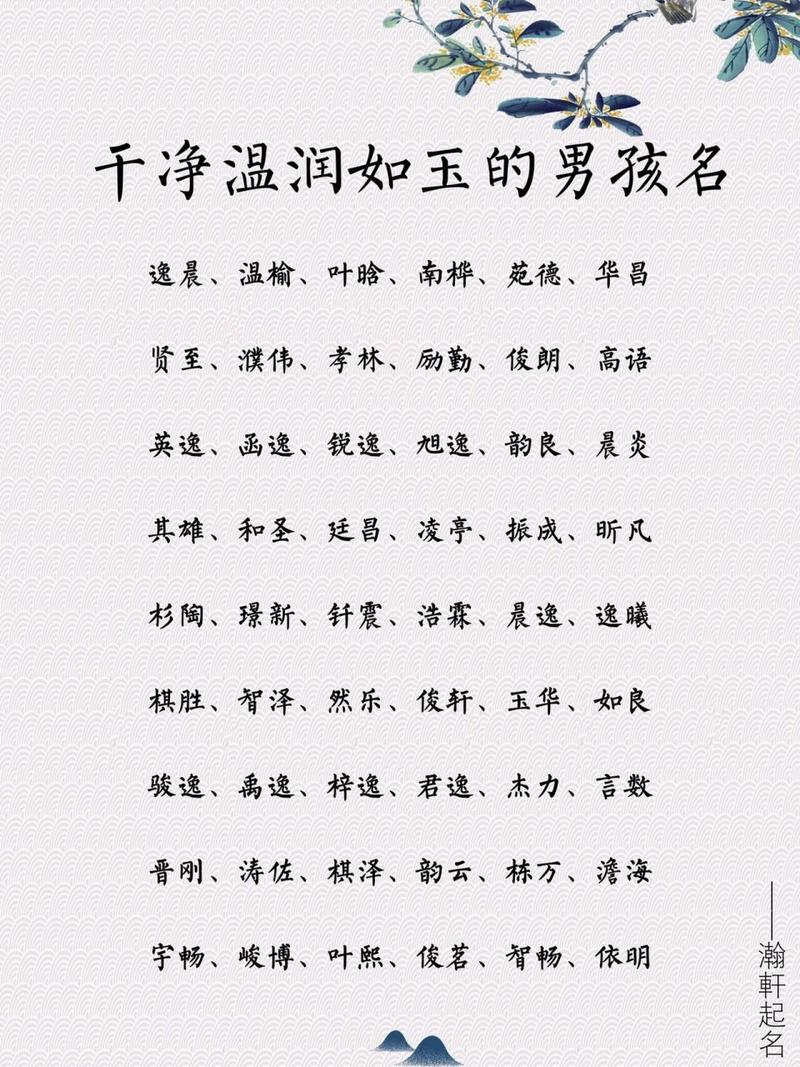 干净温润如玉的男孩名
逸晨、温榆、叶晗、南桦、苑德、华昌
贤至、濮伟、孝林、励勤、俊朗、高语
英逸、函逸、锐逸、旭逸、韵良、晨炎
其雄、和圣、廷昌、凌亭、振成、昕凡
杉陶、璟新、钎震、浩霖、晨逸、逸曦
棋胜、智泽、然乐、俊轩、玉华、如良
骏逸、禹逸、梓逸、君逸、杰力、言数
晋刚、涛佐、棋泽、韵云、栋万、澹海
宇畅、峻博、叶熙、俊茗、智畅、依明
——瀚軒起名